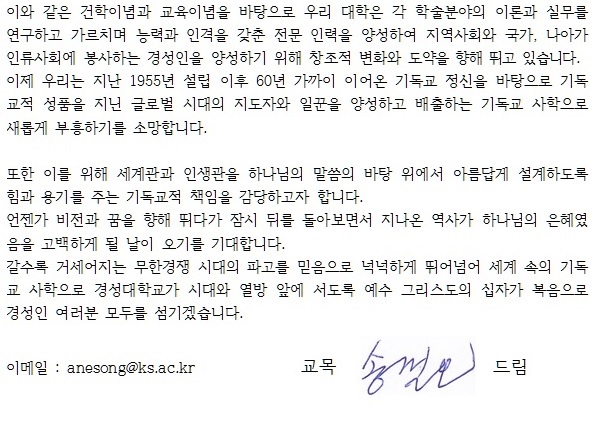 이와 같은 건학이념과 교육이념을 바탕으로 우리 대학은 각 학술분야의 이론과 실무를
연구하고 가르치며 능력과 인격을 갖춘 전문 인력을 양성하여 지역사회와 국가, 나아가
인류사회에 봉사하는 경성인을 양성하기 위해 창조적 변화와 도약을 향해 뛰고 있습니다.
이제 우리는 지난 1955년 설립 이후 60년 가까이 이어온 기독교 정신을 바탕으로 기독
교적 성품을 지닌 글로벌 시대의 지도자와 일꾼을 양성하고 배출하는 기독교 사학으로
새롭게 부흥하기를 소망합니다.
또한 이를 위해 세계관과 인생관을 하나님의 말씀의 바탕 위에서 아름답게 설계하도록
힘과 용기를 주는 기독교적 책임을 감당하고자 합니다.
언젠가 비전과 꿈을 향해 뛰다가 잠시 뒤를 돌아보면서 지나온 역사가 하나님의 은혜였
음을 고백하게 될 날이 오기를 기대합니다.
갈수록 거세어지는 무한경쟁 시대의 파고를 믿음으로 넉넉하게 뛰어넘어 세계 속의 기독
교 사학으로 경성대학교가 시대와 열방 앞에 서도록 예수 그리스도의 십자가 복음으로
경성인 여러분 모두를 섬기겠습니다.
이메일 : anesong@ks.ac.kr 교목 드림